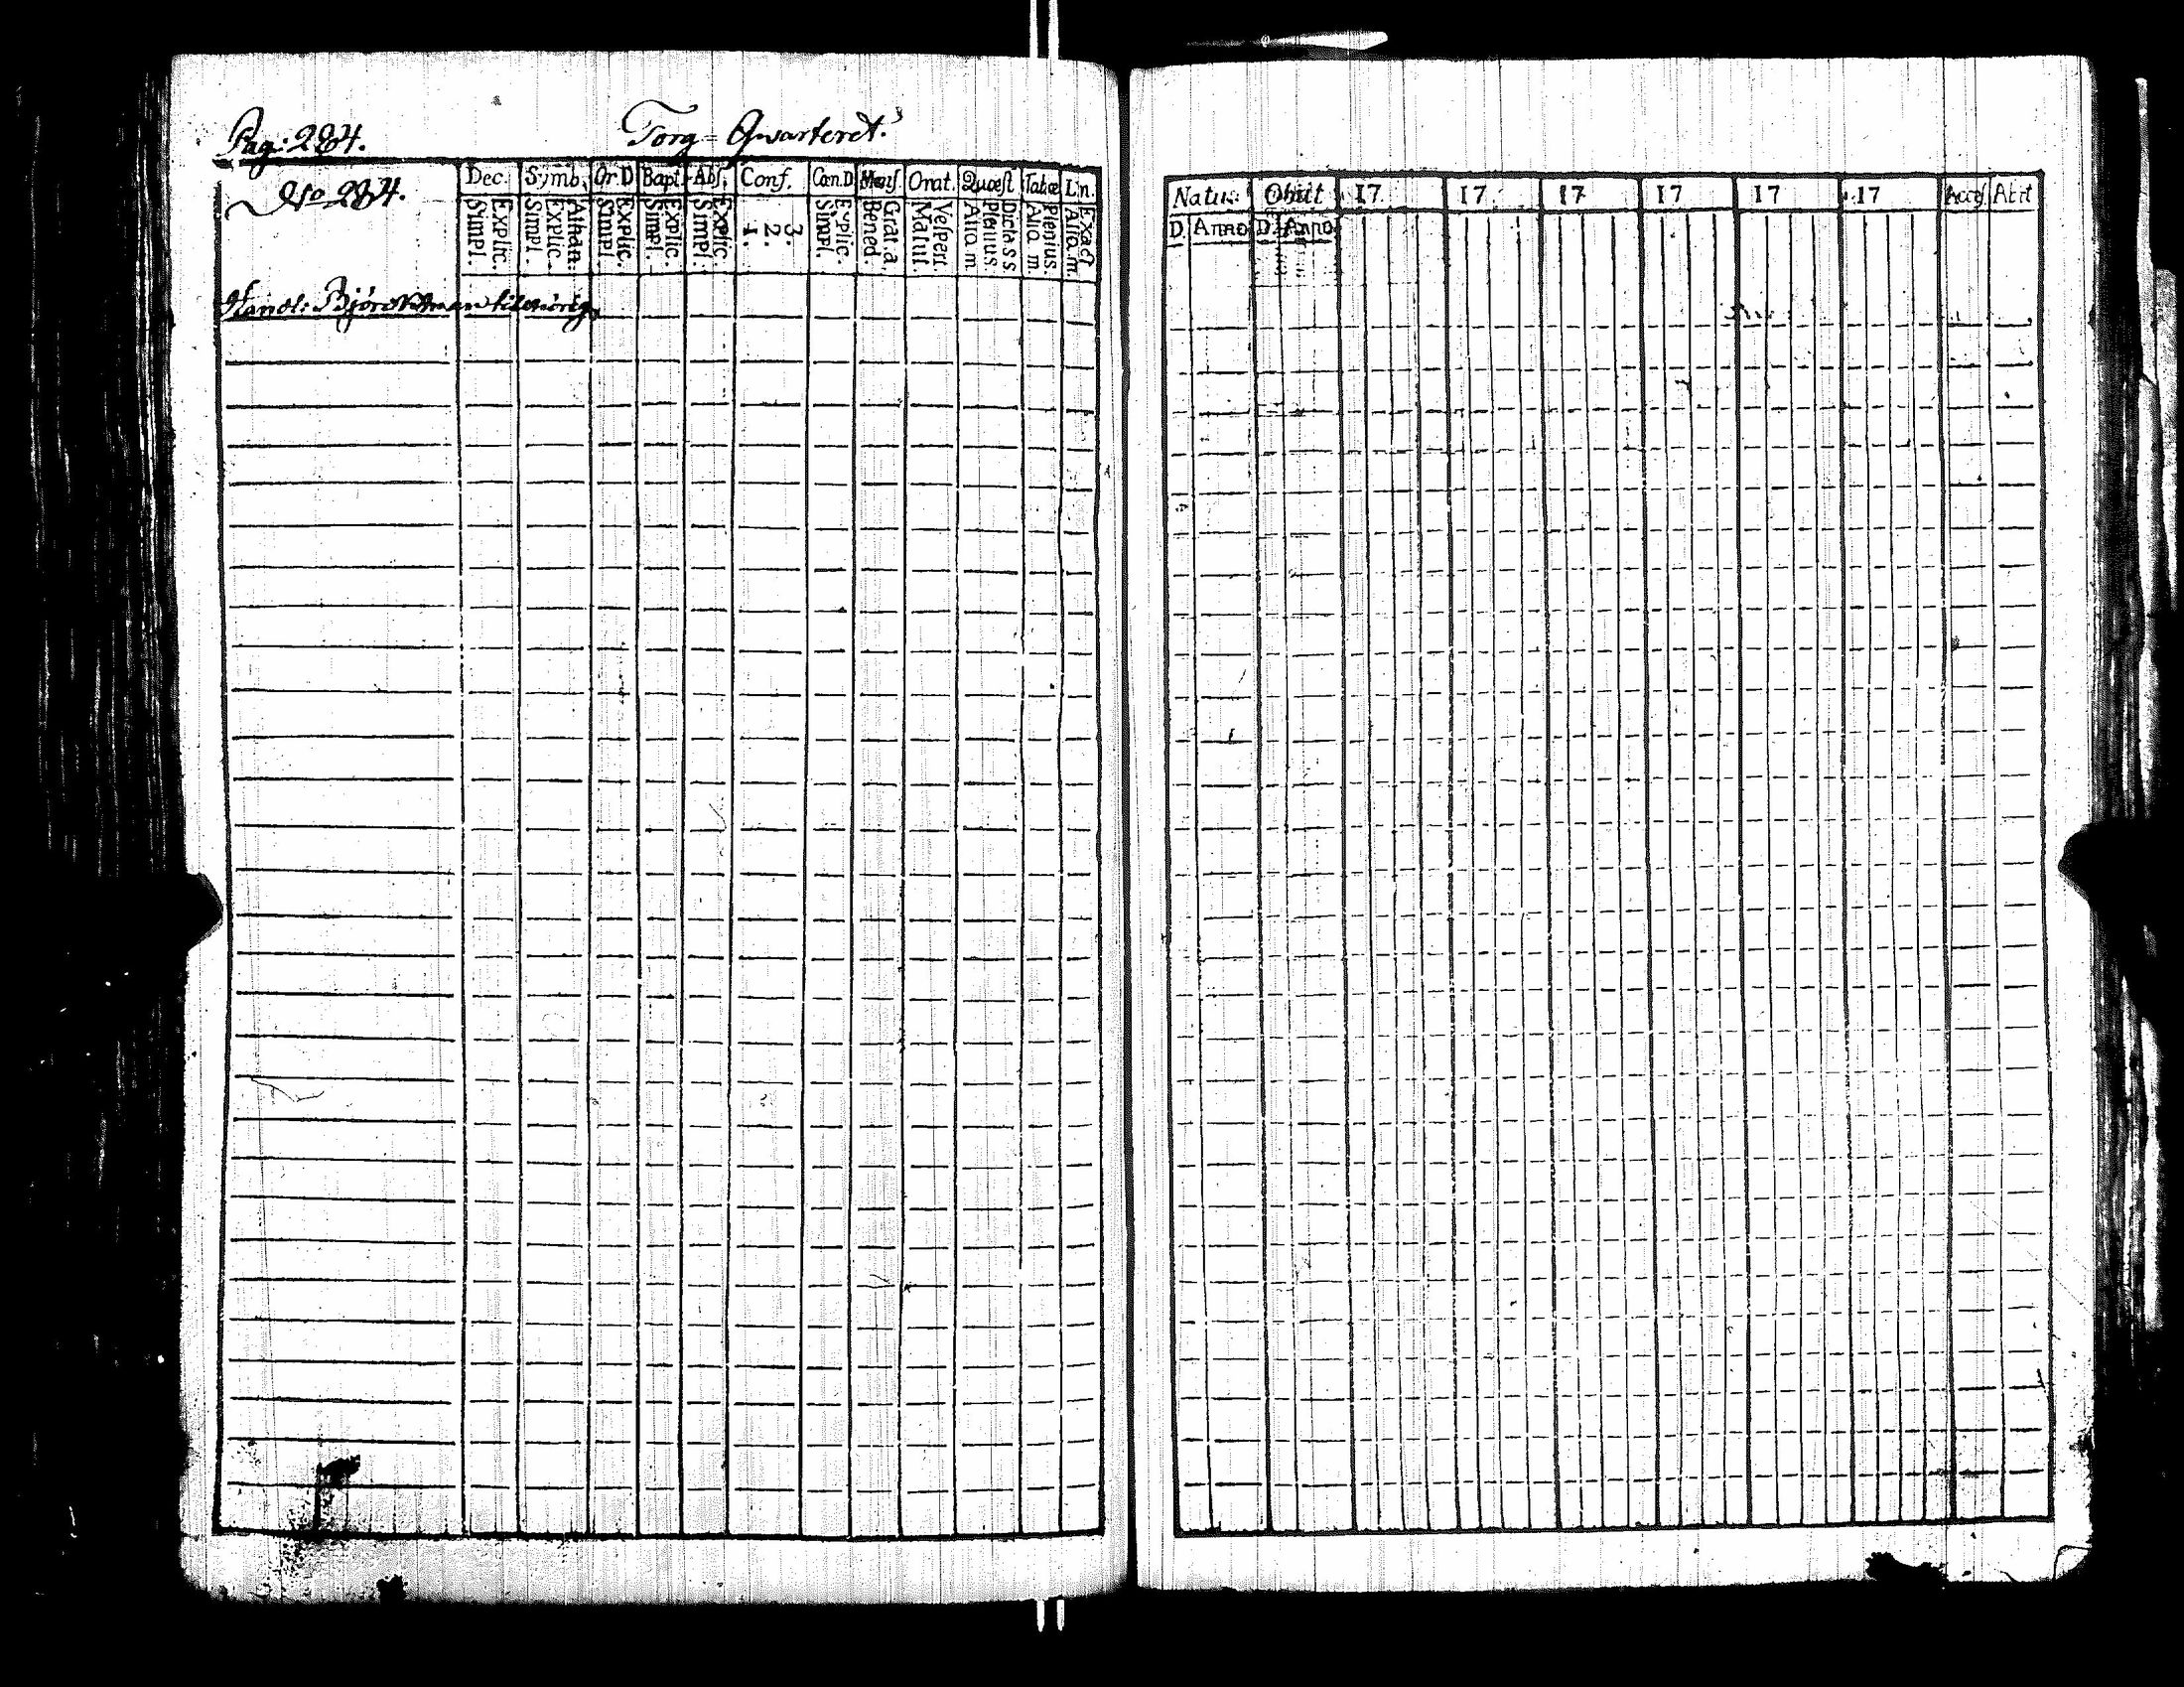 Pag: 284. Torg=Qwarteret.
No 284.
Dec. Symb. Or.D Bapt. Abs. Conf. Cœn.D Mens. Orat. Quæst. Tabæ Lin.
Simpl. Explic. Simpl. Explic. Athan: Simpl. Explic. Simpl. Explic. Simpl. Explic. 1. 2. 3. Simpl. Explic. Bened. Grat. a. Matut. Vespert. Alia m. Plenius. Dicta SS. Alia m. Plenius. Alia m. Exact
Handl: Björckman tilhörig,
Natus Obiit 17 17 17 17 17 17 Access. Abit
D. Anno D. Anno